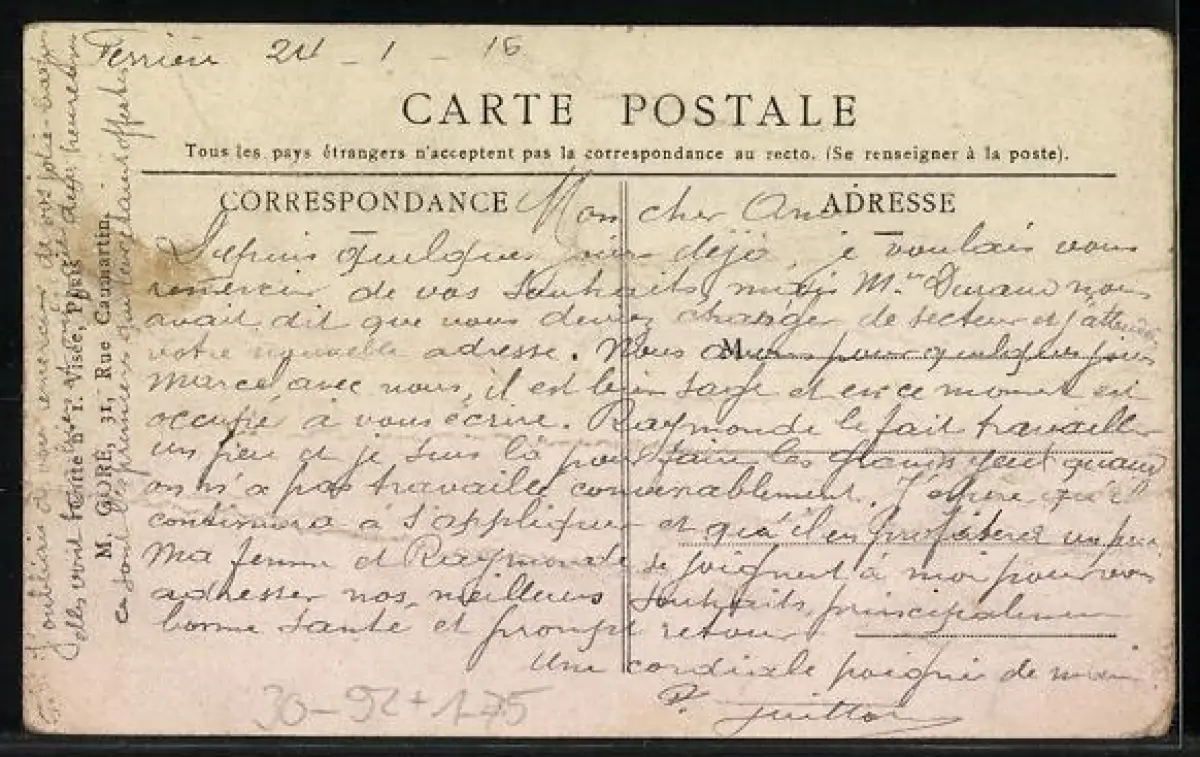 24 - 1 - 16
CARTE POSTALE
Tous les pays étrangers n'acceptent pas la correspondance au recto. (Se renseigner à la poste).
CORRESPONDANCE
ADRESSE
Mon cher Ami
Depuis quelques jours déjà, je voulais vous
remercier de vos souhaits, mais Durand nous
avait dit que vous deviez changer de secteur et j'attendais
votre nouvelle adresse. Nous avons pour quelques jours
M
Marcel avec nous, il est bien sage et en ce moment est
occupé à vous écrire. Raymonde le fait travailler
un peu et je suis là pour faire les grands yeux quand
on n'a pas travaillé convenablement. J'espère qu'il
continuera à s'appliquer et qu'il en profitera un peu.
Ma femme et Raymonde se joignent à moi pour vous
adresser nos meilleurs souhaits, principalement
bonne santé et prompt retour
Une cordiale poignée de main
30-92+1-75
J'oubliais de vous remercier de vos
Elles vont
Visé, Paris
M. GORE, 31, Rue Caumartin,
ce sont les premières qui leur étaient offertes